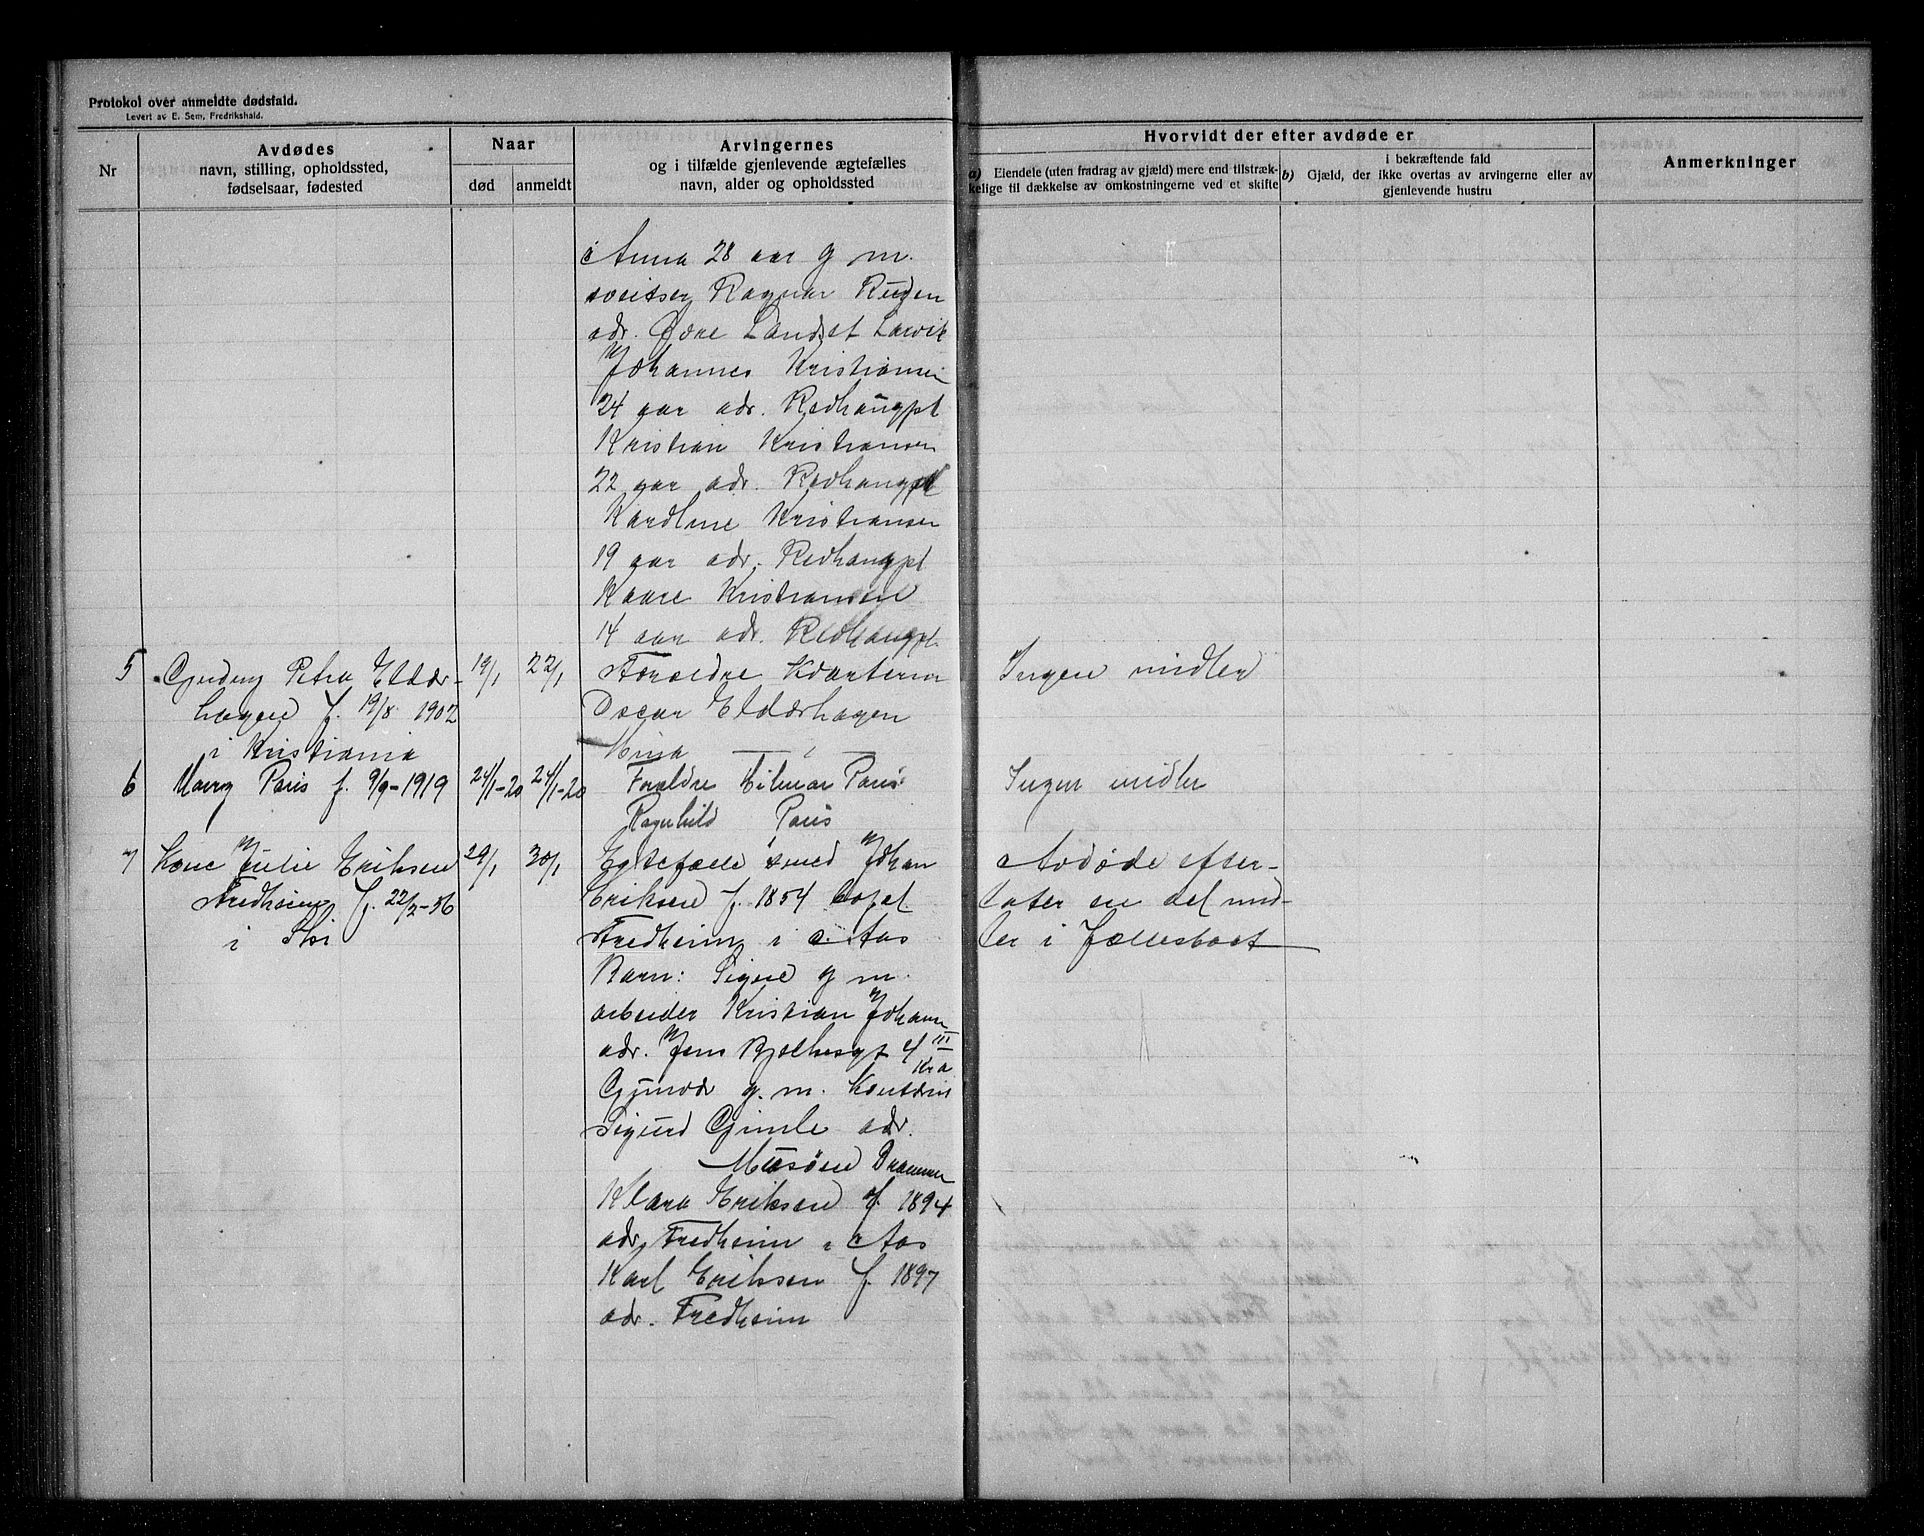 Protokol over anmeldte dødsfald.
Levert av E. Sem, Fredrikshald.
Nr
Avdødes
navn, stilling, opholdssted,
fødselsaar, fødested
Naar
død
anmeldt
Arvingernes
og i tilfælde gjenlevende ægtefælles
navn, alder og opholdssted
Hvorvidt der efter avdøde er
a) Eiendele (uten fradrag av gjæld) mere end tilstræk-
kelige til dækkelse av omkostningerne ved et skifte
i bekræftende fald
b) Gjæld, der ikke overtas av arvingerne eller av
gjenlevende hustru
Anmerkninger
Anna 28 aar g m.
sveitser Ragnar
adr. Landset Larvik
Johannes Kristiansen
24 aar adr. Redhaugpl
Kristian Kristiansen
22 aar adr. Redhaugpl
Karoline Kristiansen
19 aar adr. Redhaugpl
Kaare Kristiansen
14 aar adr. Redhaugpl.
5 Petra Eldør-
hagen f. 19/8 1902
i Kristiania
19/1 22/1
Foreldre Kvartermr
Oscar Eldørhagen
Ingen midler
6 Paris f. 9/9-1919
24/1-20 24/1-20
Foreldre Hilmar Paris
Ragnhild Paris
Ingen midler
7 Kone Julie Eriksen
Fredheim f. 22/2-56
i Ski
29/1 30/1
Egtefælle smed Johan
Eriksen f. 1854 bopel
Fredheim i Aas
Barn: Signe g m.
arbeider Kristian Johans
adr. Jens Bjelkesgt 4 III
Kra
g. m. Kontoris
Sigurd Gimle adr.
Drammen
Klara Eriksen f. 1894
adr. Fredheim i Aas
Karl Eriksen f. 1897
adr. Fredheim
Avdøde efter-
later en del mid-
ler i fællesboet